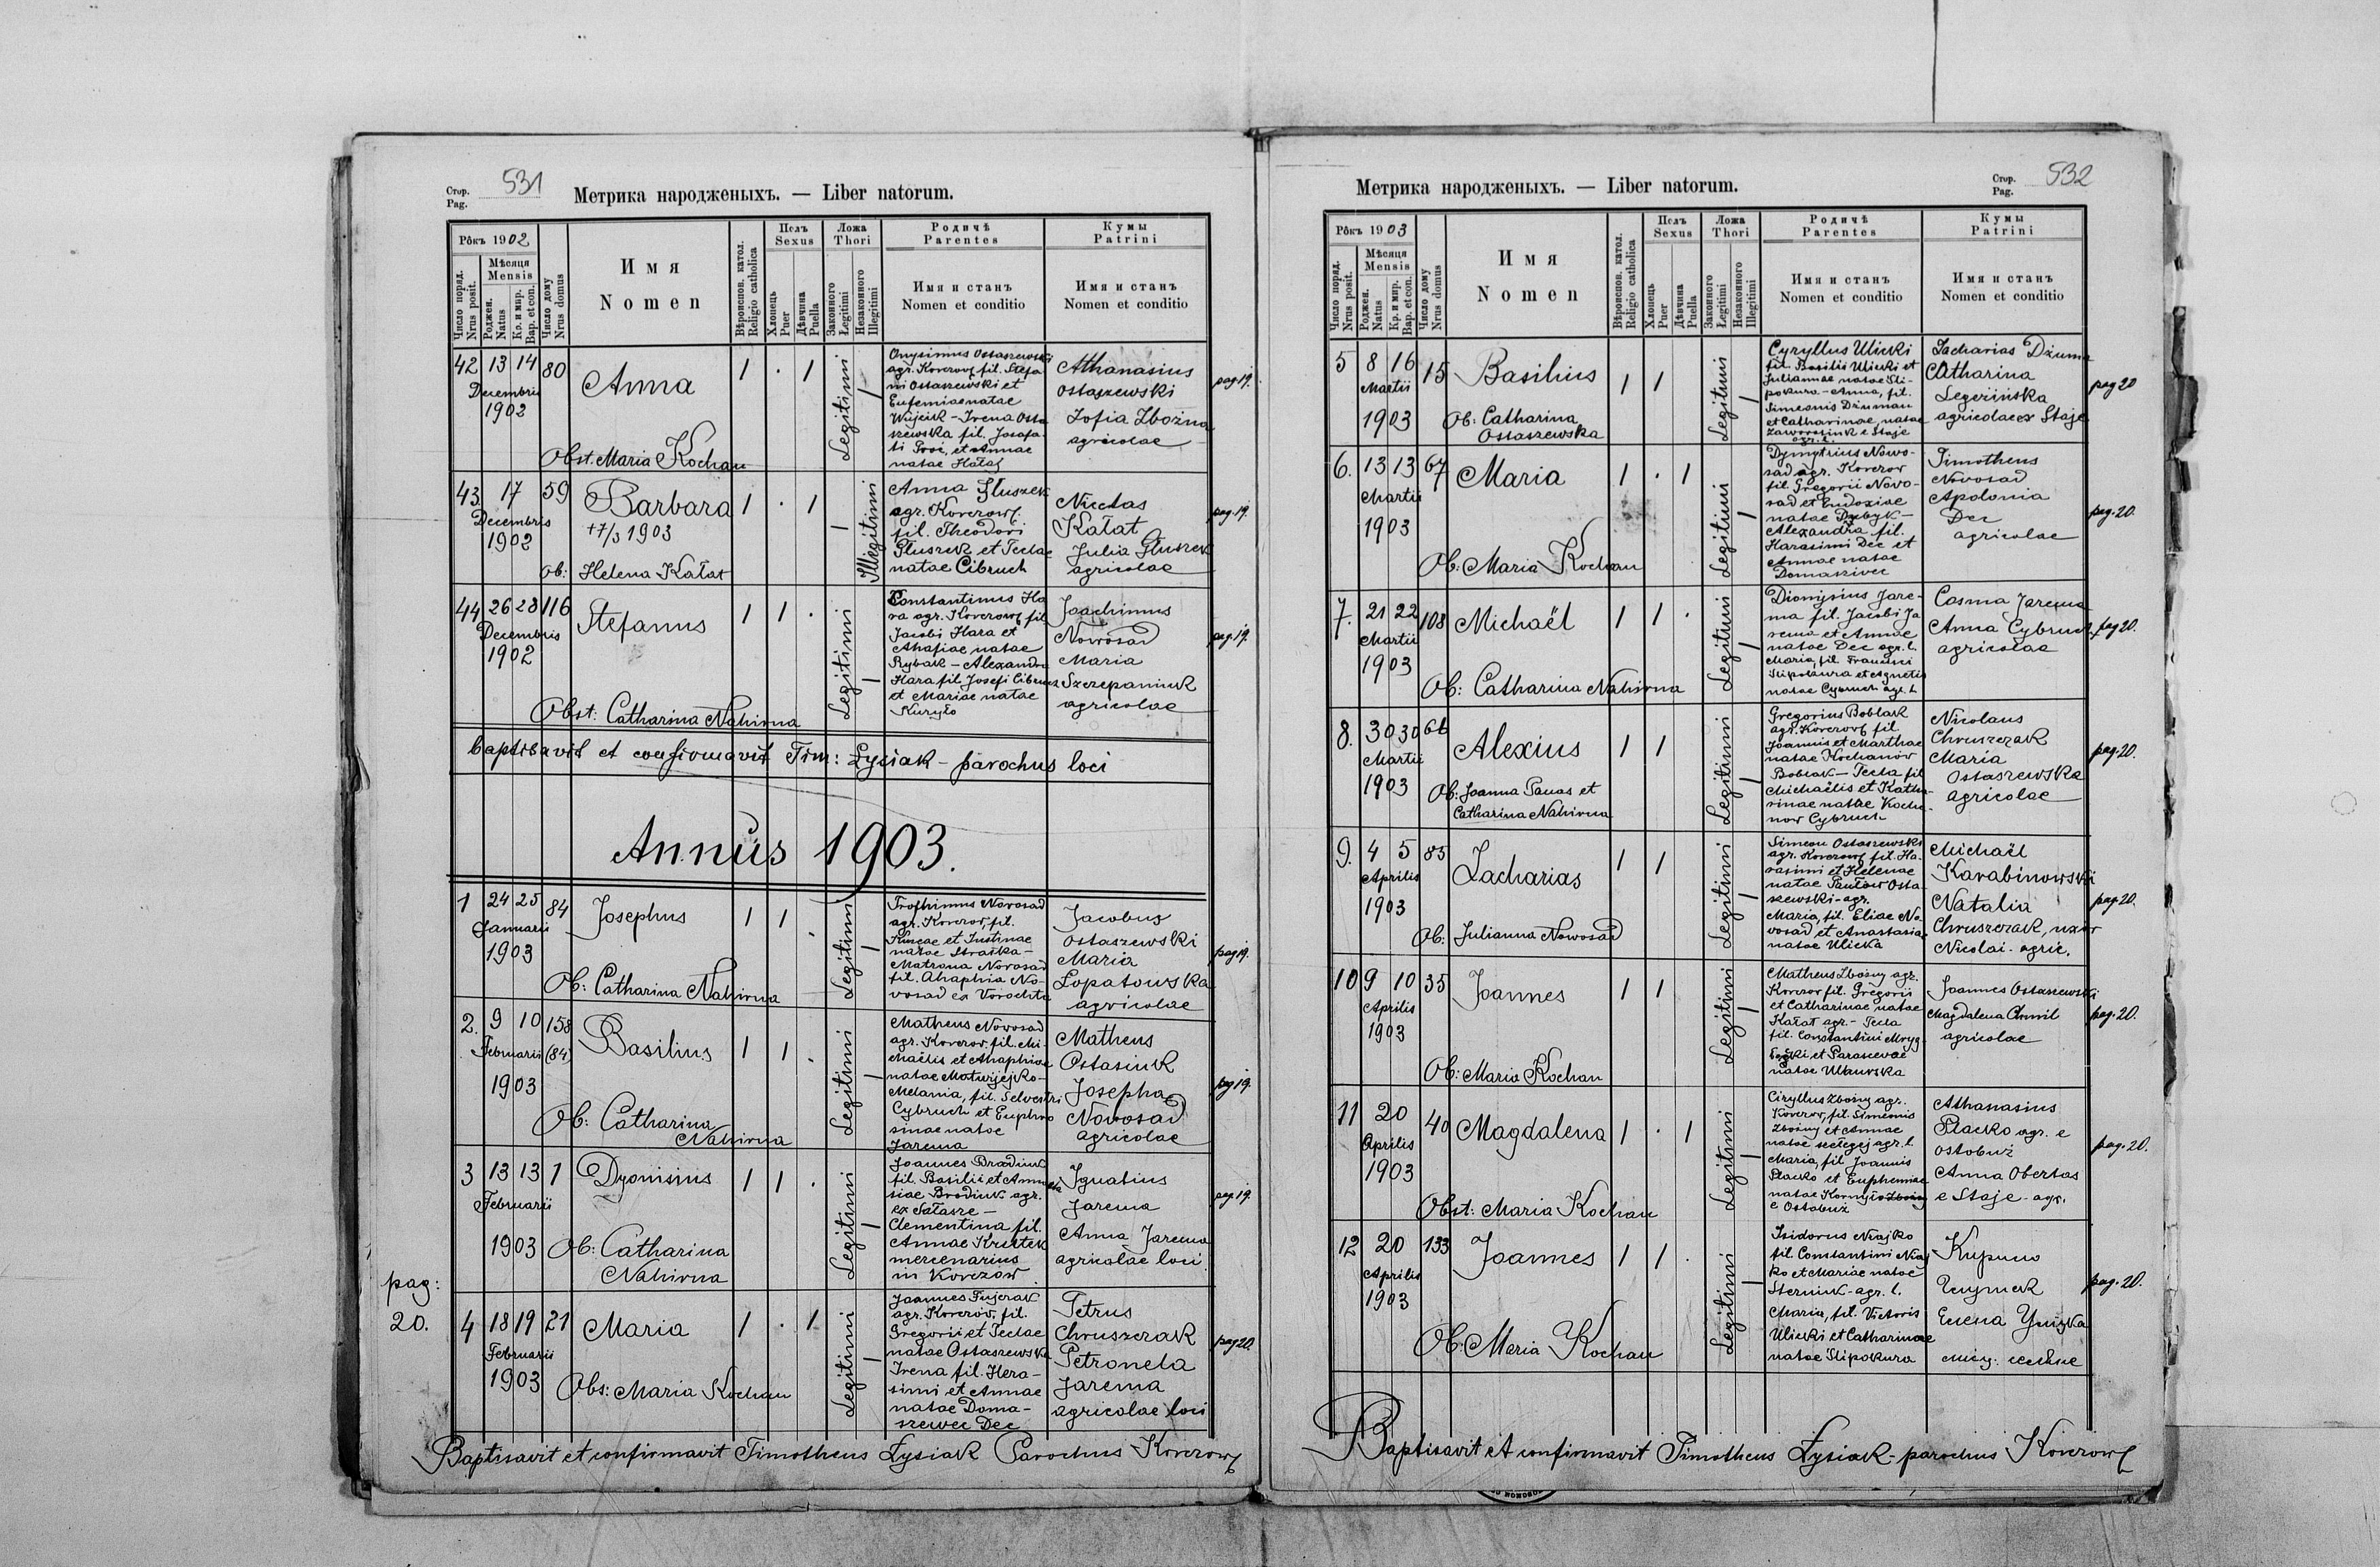 Стор.
Pag.
531
Метрика народженыхъ. — Liber natorum.
Рôкъ 1902
Число поряд.
Nrus posit.
Мѣсяця
Mensis
Роджен.
Natus
Кр. и мир.
Bap. et con.
Число дому
Nrus domus
Имя
Nomen
Вѣроиспов. катол.
Religio catholica
Полъ
Sexus
Хлопець
Puer
Дѣвчина
Puella
Ложа
Thori
Законного
Legitimi
Незаконного
Illegitimi
Родичѣ
Parentes
Имя и станъ
Nomen et conditio
Кумы
Patrini
Имя и станъ
Nomen et conditio
42 13 14 80
Decembris
1902
Anna
1 . 1
Legitimi
Onysimus Ostaszewski
agr. Korczow, fil. Stefa-
ni Ostaszewski et
Eufemiae natae
Wujcik - Irena Osta
szewska fil. Josafa-
ti Proc, et Annae
natae Hałaj
Athanasius
Ostaszewski
Zofia Zbożna
agricolae
pag 19.
Obst. Maria Kochan
43. 17 59
Decembris
1902
Barbara
+7/3 1903
1 . 1
Illegitimi
Anna Głuszek
agr. Korczow,
fil. Theodori
Głuszek et Teclae
natae Cibruch
Nicetas
Kałat
Julia Głuszek
agricolae
pag. 19.
Ob: Helena Kałat
44 26 28 116
Decembris
1902
Stefanus
1 1 .
Legitimi
Constantinus Ha
ra agr. Korczow, fil
Jacobi Hara et
Ahafiae natae
Rybak - Alexandra
Hara fil. Josefi Cibruch
et Mariae natae
Kuryło
Joachimus
Nowosad
Maria
Szczepaniuk
agricolae
pag. 19.
Obst: Catharina Nahirna
baptisavit et confirmavit Tim: Łysiak - parochus loci
Annus 1903.
1 24 25 84
Januarii
1903
Josephus
1 1
Legitimi
Trofhimus Novosad
agr. Korczow, fil.
Lucae et Justinae
natae Straška -
Matrona Novosad
fil. Ahaphia No-
vosad ex Vorochta
Jacobus
Ostaszewski
Maria
Łopatowska
agricolae
pag 19.
Ob: Catharina Nahirna
2. 9 10 158
Februarii (84)
1903
Basilius
1 1 .
Legitimi
Matheus Nowosad
agr. Korczow. fil. Mi-
chaëlis et Ahaphiae
natae Matwijejko -
Melania, fil. Selvestri
Cybruch et Euphro
sinae natae
Jarema
Matheus
Ostasiuk
Josepha
Novosad
agricolae
pag 19.
Ob: Catharina
Nahirna
3 13 13 1
Februarii
1903
Dyonisius
1 1 .
Legitimi
Joannes Bradiuk
fil. Basilii et Anna
siae Brodiuk agr.
ex Sałasze -
Clementina fil.
Annae Krutek
mercenarius
in Korczów
Ignatius
Jarema
Anna Jarema
agricolae loci
pag 19.
Ob: Catharina
Nahirna
pag:
20.
4 18 19 21
Februarii
1903
Maria
1 . 1
Legitimi
Joannes Fujerak
agr. Korczów, fil.
Gregorii et Teclae
natae Ostaszewska
Irena fil. Hera-
simi et Annae
natae Doma-
szewec Dec
Petrus
Chruszczak
Petronela
Jarema
agricolae loci
pag 20.
Obs: Maria Kochan
Baptisavit et confirmavit Timotheus Łysiak Parochus Korczow
Метрика народженыхъ. — Liber natorum.
Стор.
Pag.
532
Рôкъ 1903
Число поряд.
Nrus posit.
Мѣсяця
Mensis
Роджен.
Natus
Кр. и мир.
Bap. et con.
Число дому
Nrus domus
Имя
Nomen
Вѣроиспов. катол.
Religio catholica
Полъ
Sexus
Хлопець
Puer
Дѣвчина
Puella
Ложа
Thori
Законного
Legitimi
Незаконного
Illegitimi
Родичѣ
Parentes
Имя и станъ
Nomen et conditio
Кумы
Patrini
Имя и станъ
Nomen et conditio
5 8 16 15
Martii
1903
Basilius
1 1
Legitimi
Cyryllus Ulicki
fil. Basilii Ulicki et
Juliannae natae Sli-
pokura - Anna, fil.
Simeonis Dziuman
et Catharinae, natae
Zaworoziuk e Staje
agr. l.
Zacharias Dziuma
Catharina
Legerińska
agricolae ex Staje
pag 20
Ob: Catharina
Ostaszewska
6. 13 13 67
Martii
1903
Maria
1 . 1
Legitimi
Dymytrius Nowo-
sad agr. Korczow
fil. Gregorii Novo-
sad et Eudoxiae
natae Dzybyk -
Alexandra fil.
Harasimi Dec et
Annae natae
Domaszivec
Timotheus
Novosad
Apolonia
Dec
agricolae
pag. 20.
Ob: Maria Kochan
7. 21 22 108
Martii
1903
Michaël
1 1 .
Legitimi
Dionysius Jare-
ma fil. Jacobi Ja
rema et Annae
natae Dec agr. l.
Maria, fil. Francisci
Slipokura et Agnetis
natae Cybruch agr. l.
Cosma Jarema
Anna Cybruch
agricolae
pag 20.
Ob: Catharina Nahirna
8. 30 30 66
Martii
1903
Alexius
1 1
Legitimi
Gregorius Boblak
agr. Korczow, fil.
Joannis et Marthae
natae Kochanów
Boblak - Tecla fil
Michaëlis et Katha-
rinae natae Kocha-
now Cybruch
Nicolaus
Chruszczak
Maria
Ostaszewska
agricolae
pag. 20.
Ob: Joanna Panas et
Catharina Nahirna
9. 4 5 85
Aprilis
1903
Zacharias
1 1
Legitimi
Simeon Ostaszewski
agr. Korczow, fil. Ha-
rasimi et Helenae
natae Pawłow Osta-
szewski - agr.
Maria, fil. Eliae No-
vosad et Anastasiae
natae Ulicka
Michaël
Karabinowski
Natalia
Chruszczak, uxor
Nicolai - agric.
pag 20.
Ob: Julianna Nowosad
10 9 10 35
Aprilis
1903
Joannes
1 1
Legitimi
Matheus Zbożny agr.
Korczow fil. Gregorii
et Catharinae, natae
Kałat agr. - Tecla
fil. Constantini Mryg-
łocki et Parascevae
natae Ulanwska
Joannes Ostaszewski
Magdalena Chmil
agricolae
pag. 20.
Ob: Maria Kochan
11 20 40
Aprilis
1903
Magdalena
1 . 1
Legitimi
Ciryllus Zbożny agr.
Korczow, fil. Simeonis
Zbożny et Annae
natae agr. l.
Maria, fil Joannis
Placko et Euphemiae
natae Kornyło Zbożny
e Ostobuż
Athanasius
Placko agr. e
Ostobuż
Anna Obertas
e Staje - agr.
pag. 20.
Obst: Maria Kochan
12 20 133
Aprilis
1903
Joannes
1 1 .
Legitimi
Isidorus Niajko
fil. Constantini Niaj
ko et Mariae natae
Sterniuk - agr. l.
Maria, fil. Victoris
Ulicki et Catharinae
natae Slipokura
Кирило
Елена Улицка
pag. 20.
Ob: Maria Kochan
Baptisavit et confirmavit Timotheus Łysiak - parochus Korczow